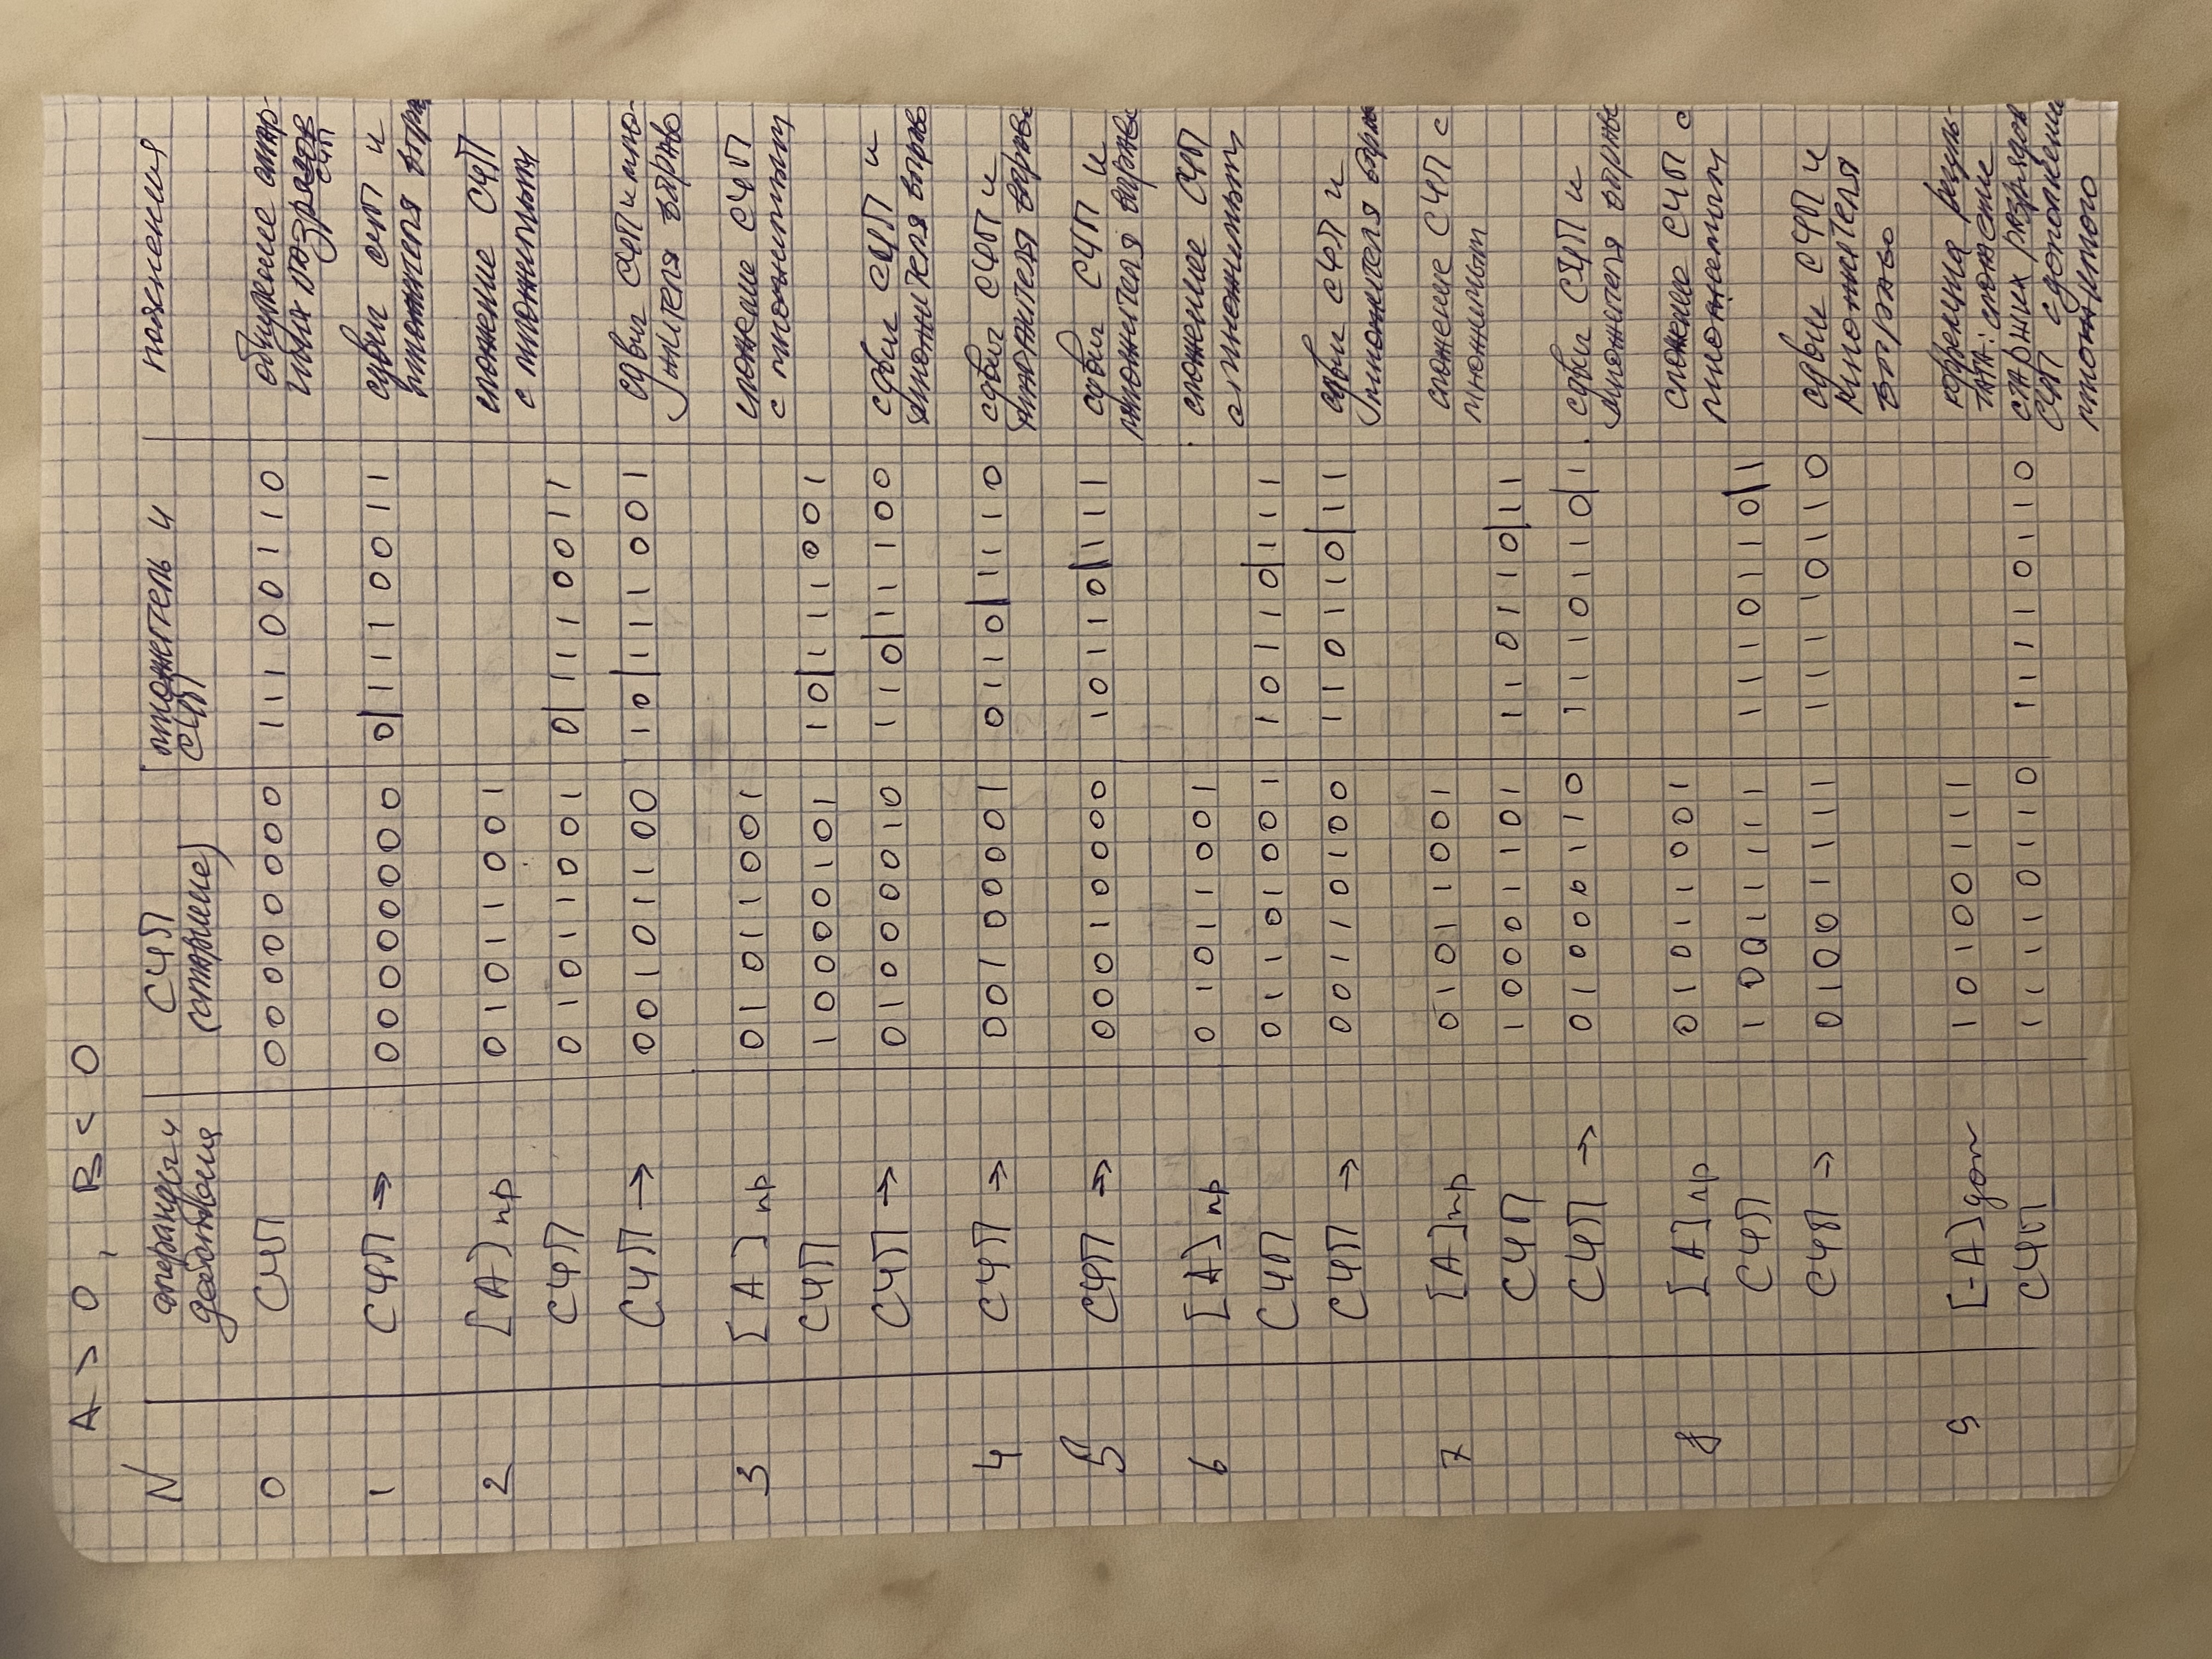 A > 0, B < 0
N операнды и действия СЧП (старшие) множитель и СЧП пояснения
0 СЧП 00000000 11100110 обнуление стар-
ших разрядов СЧП
1 СЧП → 00000000 0|1110011 сдвиг СЧП и
множителя впра
2 [A]пр 01011001 сложение СЧП
с множимым
СЧП 01011001 0|1110011
СЧП → 00101100 10|111001 сдвиг СЧП и мно-
жителя вправо
3 [A]пр 01011001 сложение СЧП
с множимым
СЧП 10000101 10|111001
СЧП → 01000010 110|11100 сдвиг СЧП и
множителя вправо
4 СЧП → 00100001 0110|1110 сдвиг СЧП и
множителя вправо
5 СЧП → 00010000 10110|111 сдвиг СЧП и
множителя вправо
6 [A]пр 01011001 сложение СЧП
с множимым
СЧП 01101001 10110|111
СЧП → 00110100 110110|11 сдвиг СЧП и
множителя вправо
7 [A]пр 01011001 сложение СЧП с
множимым
СЧП 10001101 110110|11
СЧП → 01000110 1110110|1 сдвиг СЧП и
множителя вправо
8 [A]пр 01011001 сложение СЧП с
множимым
СЧП 10011111 1110110|1
СЧП → 01001111 11110110 сдвиг СЧП и
множителя
вправо
9 [-A]доп 10100111 коррекция резуль-
тата: сложение
СЧП 11110110 11110110 старших разрядов
СЧП с дополнени
множимого